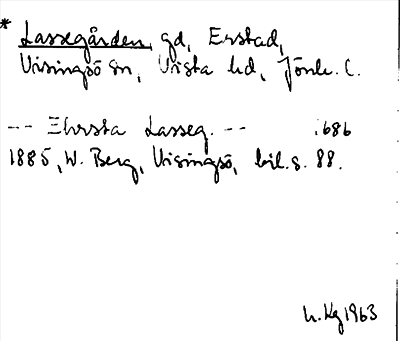 * Lassegården, gd, Erstad,
Visingsö sn, Vista hd, Jönk. l.
-- Ehrsta Lasseg. -- 1686
1885, W. Berg, Visingsö, bil. s. 88.
1963